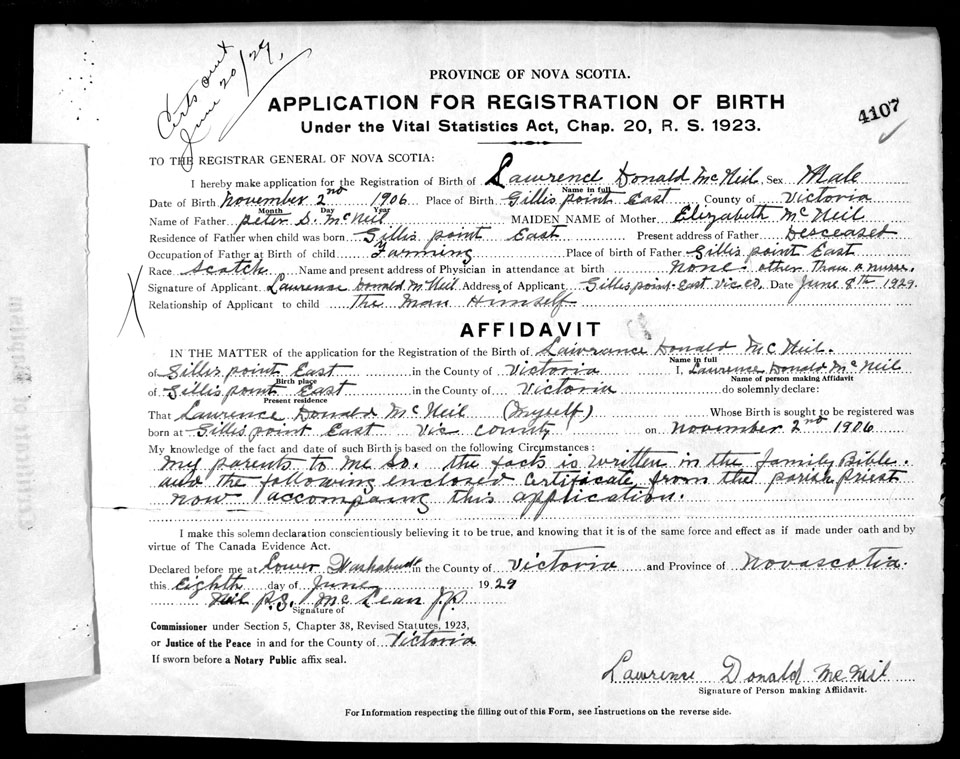 Certs out
June 20/29.
PROVINCE OF NOVA SCOTIA.
APPLICATION FOR REGISTRATION OF BIRTH
4107
Under the Vital Statistics Act, Chap. 20, R. S. 1923.
TO THE REGISTRAR GENERAL OF NOVA SCOTIA:
I hereby make application for the Registration of Birth of Lawrence Donald McNeil Sex Male
Name in full
Date of Birth November 2nd 1906 Place of Birth Gillis point East County of Victoria
Month Day Year
Name of Father peter S. McNeil MAIDEN NAME of Mother Elizabeth McNeil
Residence of Father when child was born Gillis point East Present address of Father Desceaset
Occupation of Father at Birth of child Farming Place of birth of Father Gillis point East
Race Scotch Name and present address of Physician in attendance at birth none. other than a nurse.
Signature of Applicant Lawrence Donald McNeil Address of Applicant Gillis point East Vic Co. Date June 8th 1929.
Relationship of Applicant to child The Man Himself
AFFIDAVIT
IN THE MATTER of the application for the Registration of the Birth of Lawrance Donald McNeil.
Name in full
of Gillis point East in the County of Victoria I, Lawrence Donald McNeil
Birth place Name of person making Affidavit
of Gillis point East in the County of Victoria do solemnly declare:
Present residence
That Lawrence Donald McNeil (Myself) Whose Birth is sought to be registered was
born at Gillis point East Vic County on November 2nd 1906
My knowledge of the fact and date of such Birth is based on the following Circumstances:
My parents to me so. the facts is written in the family Bible.
and the following enclosed certificate from the parish priest
now accompaing this application.
I make this solemn declaration conscientiously believing it to be true, and knowing that it is of the same force and effect as if made under oath and by
virtue of The Canada Evidence Act.
Declared before me at Lower Washabuck in the County of Victoria and Province of Novascotia.
this Eighth day of June 1929
Neil P.S. McLean J.P.
Signature of
Commissioner under Section 5, Chapter 38, Revised Statutes, 1923,
or Justice of the Peace in and for the County of Victoria
If sworn before a Notary Public affix seal.
Lawrence Donald McNeil
Signature of Person making Affidavit.
For Information respecting the filling out of this Form, see Instructions on the reverse side.